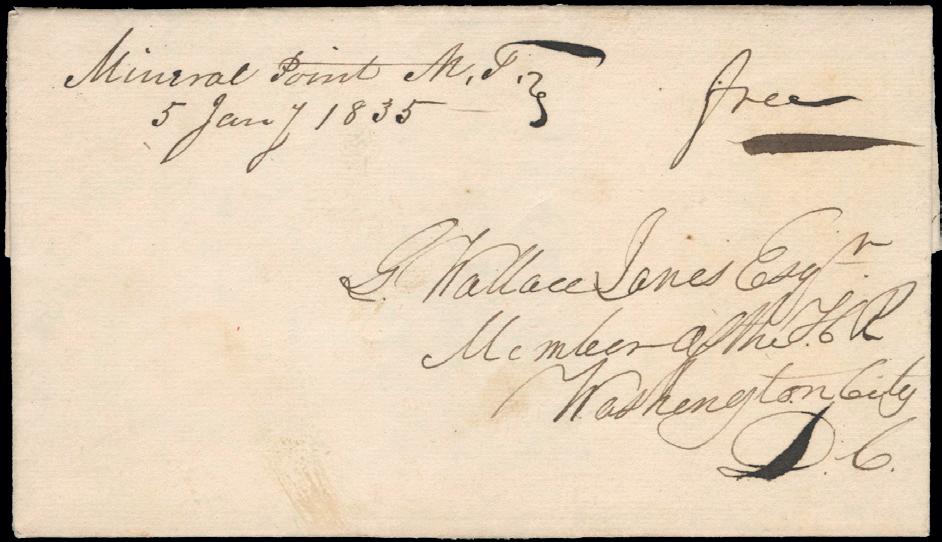 Mineral Point M. T.
5 Jany 1835
free
G. Wallace Jones Esqr.
Member of the H. R
Washington City
D. C.